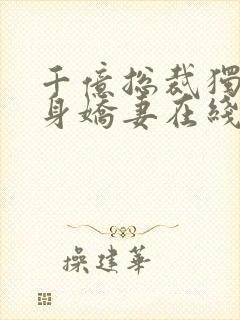 千億总裁獨
身嬌妻在綫
操建華